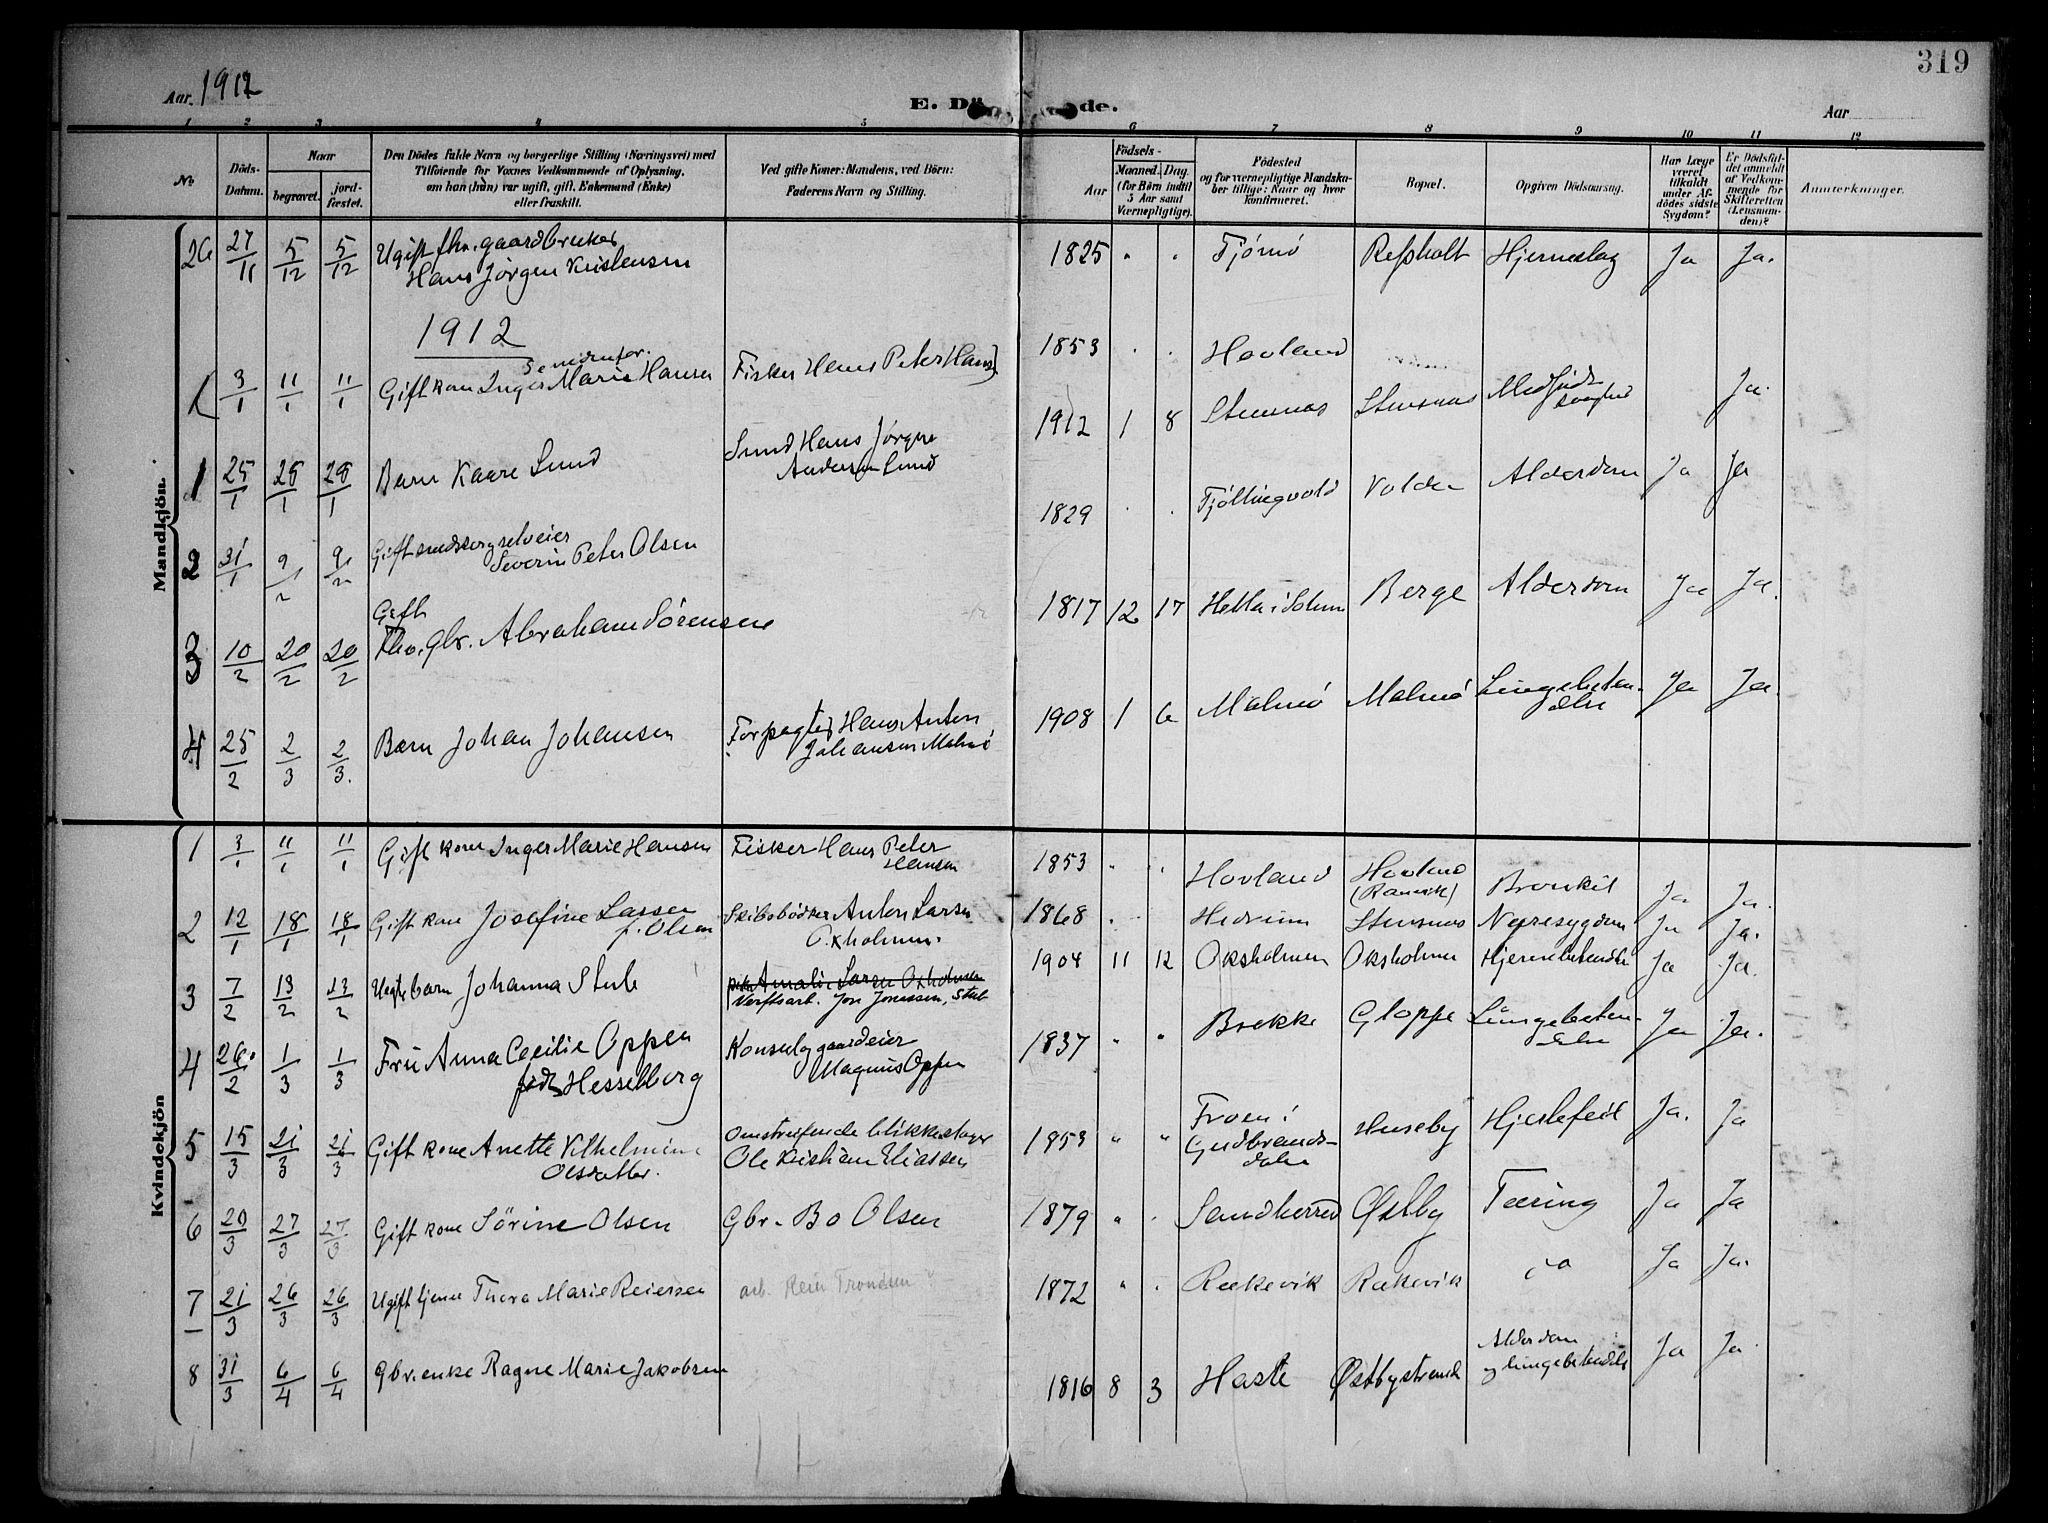 319
Aar. 1912
E. Dö de.
Aar
1 2 3 4 5 6 7 8 9 10 11 12
No.
Döds-Datum.
Naar
begravet.
jord-fæstet.
Den Dödes fulde Navn og borgerlige Stilling (Næringsvei) med
Tilföiende for Voxnes Vedkommende af Oplysning,
om han (hun) var ugift, gift, Enkemand (Enke)
eller fraskilt.
Ved gifte Koner: Mandens, ved Börn:
Faderens Navn og Stilling.
Födsels-
Aar
Maaned. Dag
(for Börn indtil
5 Aar samt
Værnepligtige).
Födested
og for værnepligtige Mandska-
ber tillige: Naar og hvor
konfirmeret.
Bopæl.
Opgiven Dödsaarsag.
Har Læge
været
tilkaldt
under Af-
dödes sidste
Sygdom?
Er Dödsfal-
det anmeldt
af Vedkom-
mende for
Skifteretten
(Lensman-
den)?
Anmærkninger.
Mandkjön.
26 27/11 5/12 5/12 Ugift fhv. gaardbruker
Hans Jörgen Kristensen
1825 " " Tjømø Refsholt Hjerneslag Ja Ja.
1912
Se nedenfor.
1 3/1 11/1 11/1 Gift kone Inger Marie Hansen Fisker Hans Peter Hans
1853 " " Hovland
1 25/1 28/1 28/1 Barn Kaare Lund Lund Hans Jørgen
Andersen Lund
1912 1 8 Stensnæs Stensnæs Medfødt
svaghed Ja
2 31/1 9/2 9/2 Gift selveier
Severin Peter Olsen
1829 " " Fjøllingvold Volden Alderdom Ja Ja
3 10/2 20/2 20/2 Gift
Fhv. Gbr. Abraham Sörensen
1817 12 17 Hella i Berge Alderdom Ja Ja.
4 25/2 2/3 2/3. Barn Johan Johansen Forpagter Hans Anton
Johansen Malmø
1908 1 6 Malmö Malmö Lungebeten-
delse Ja Ja.
Kvindekjön
1 3/1 11/1 11/1 Gift kone Inger Marie Hansen Fisker Hans Peter
Hansen
1853 " " Hovland Hovland
(Rævik) Bronkit Ja Ja.
2 12/1 18/1 18/1 Gift kone Josefine Larsen
f. Olsen Skibsbödker Anton Larsen
Oxholmen.
1868 " Hedrum Stensnæs Nyresygdom Ja Ja.
3 7/2 13/2 13/2 Uegte barn Johanna Stub Amalie Larsen Oxholmen
Verftsarb. Jon Jonassen, Stub
1904 11 12 Oksholmen Oksholmen Hjernebetendelse Ja Ja.
4 26/2 1/3 1/3 Fru Anna Cecilie Oppen
født Hesselberg Konsul og gaardeier
Magnus Oppen
1837 " " Brekke Gloppe Lungebeten-
delse Ja Ja.
5 15/3 21/3 21/3 Gift kone Anette Vilhelmine
Olsdatter. Omstreifende blikkenslager
Ole Kristian Eliassen
1853 " " Froen i
Gudbrands-
dalen Huseby Hjertefeil Ja. Ja
6 20/3 27/3 27/3 Gift kone Sörine Olsen Gbr. Bo Olsen
1879 " " Sandherred Østby Tæring Ja Ja
7 21/3 26/3 26/3 Ugift tjener Thora Marie Reiersen arb. Reier Trondsen
1872 " " Rækevik Rækevik do Ja Ja.
8 31/3 6/4 6/4 Gbr. enke Ragne Marie Jakobsen
1816 8 3 Haslé Østbystrand Alderdom
og lungebetendelse Ja Ja